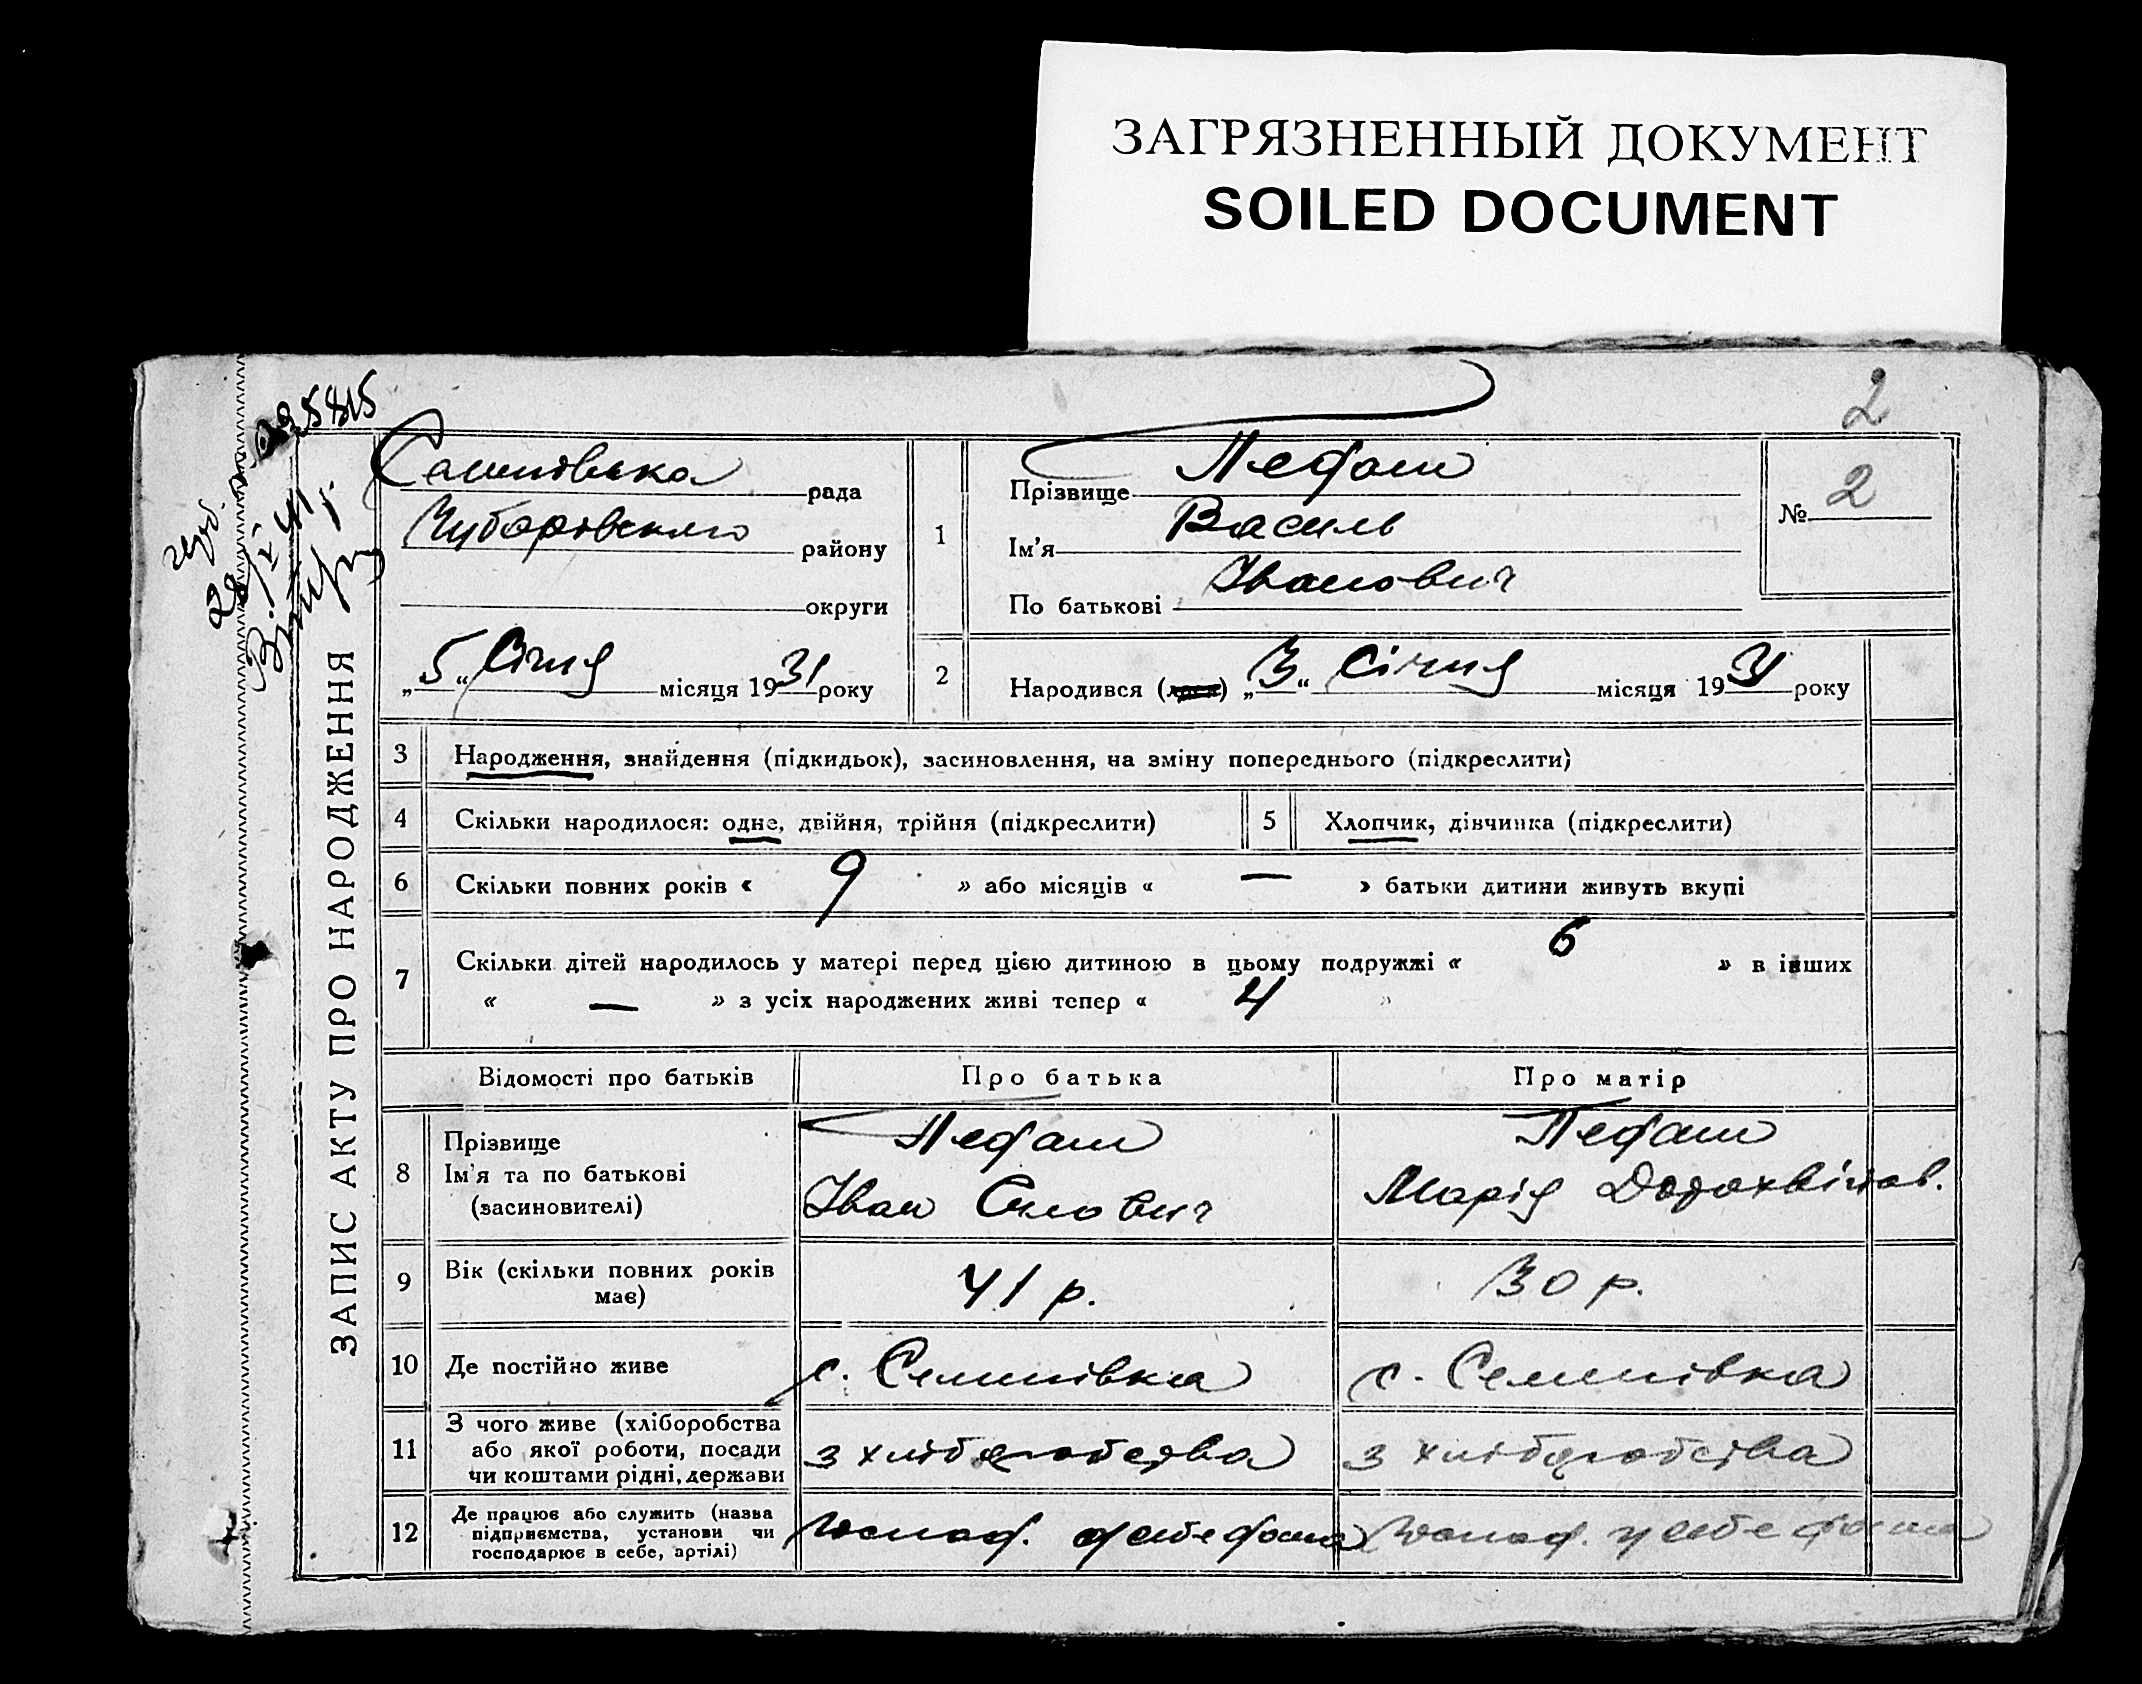 ЗАГРЯЗНЕННЫЙ ДОКУМЕНТ
SOILED DOCUMENT
2
ЗАПИС АКТУ ПРО НАРОДЖЕННЯ
рада
Чубарівського району
округи
„5“ Січня місяця 1931 року
1
Прізвище
Ім'я Василь
По батькові Іванович
№ 2
2
Народився „3“ Січня місяця 1931 року
3 Народження, знайдення (підкидьок), засиновлення, на зміну попереднього (підкреслити)
4 Скільки народилося: одне, двійня, трійня (підкреслити)
5 Хлопчик, дівчинка (підкреслити)
6 Скільки повних років « 9 » або місяців « — » батьки дитини живуть вкупі
7 Скільки дітей народилось у матері перед цією дитиною в цьому подружжі « 6 » в інших
« — » з усіх народжених живі тепер « 4 »
Відомості про батьків Про батька Про матір
8 Прізвище
Ім'я та по батькові
(засиновителі)
Іван
Марія
9 Вік (скільки повних років
має)
41 р. 30 р.
10 Де постійно живе с. Семенівка с. Семенівка
11 З чого живе (хліборобства
або якої роботи, посади
чи коштами рідні, держави
з хліборобства з хліборобства
12 Де працює або служить (назва
підприємства, установи чи
господарює в себе, артілі)